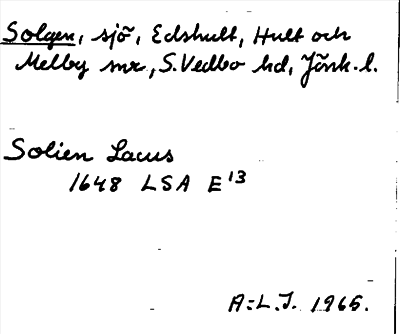 Solgen, sjö, Edshult, Hult och
Melby snr, S. Vedbo hd, Jönk. l.
Solien Lacus
1648 LSA E¹³
A:L.J. 1965.